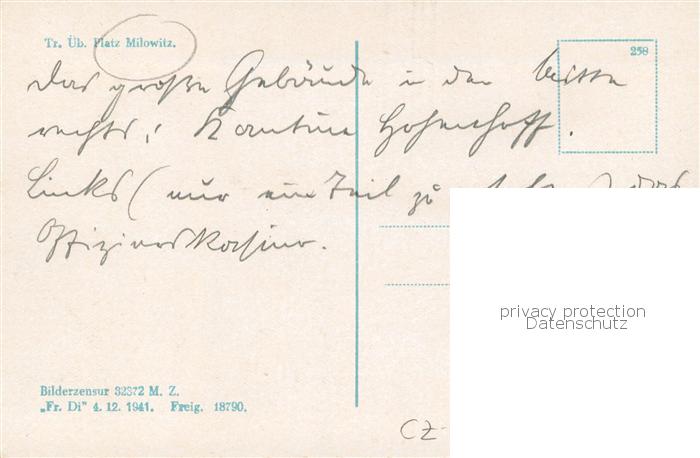 Tr. Üb. Platz Milowitz.
258
das große Gebäude in der Mitte
rechts: Kantine Hohenhoff.
Links (nur ein Teil zu sehen) das
Offizierskasino.
privacy protection
Datenschutz
Bilderzensur 32372 M. Z.
„Fr. Di" 4. 12. 1941. Freig. 18790.
CZ-